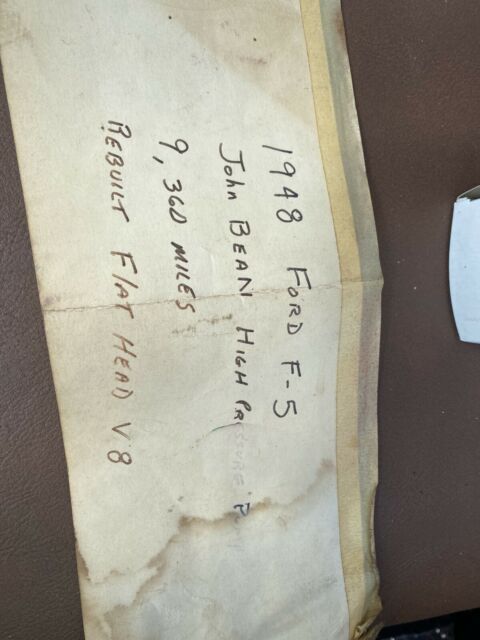 1948 FORD F-5
John BEAN HIGH PRESSURE
9,360 MILES
REBUILT FlAT HEAD V8